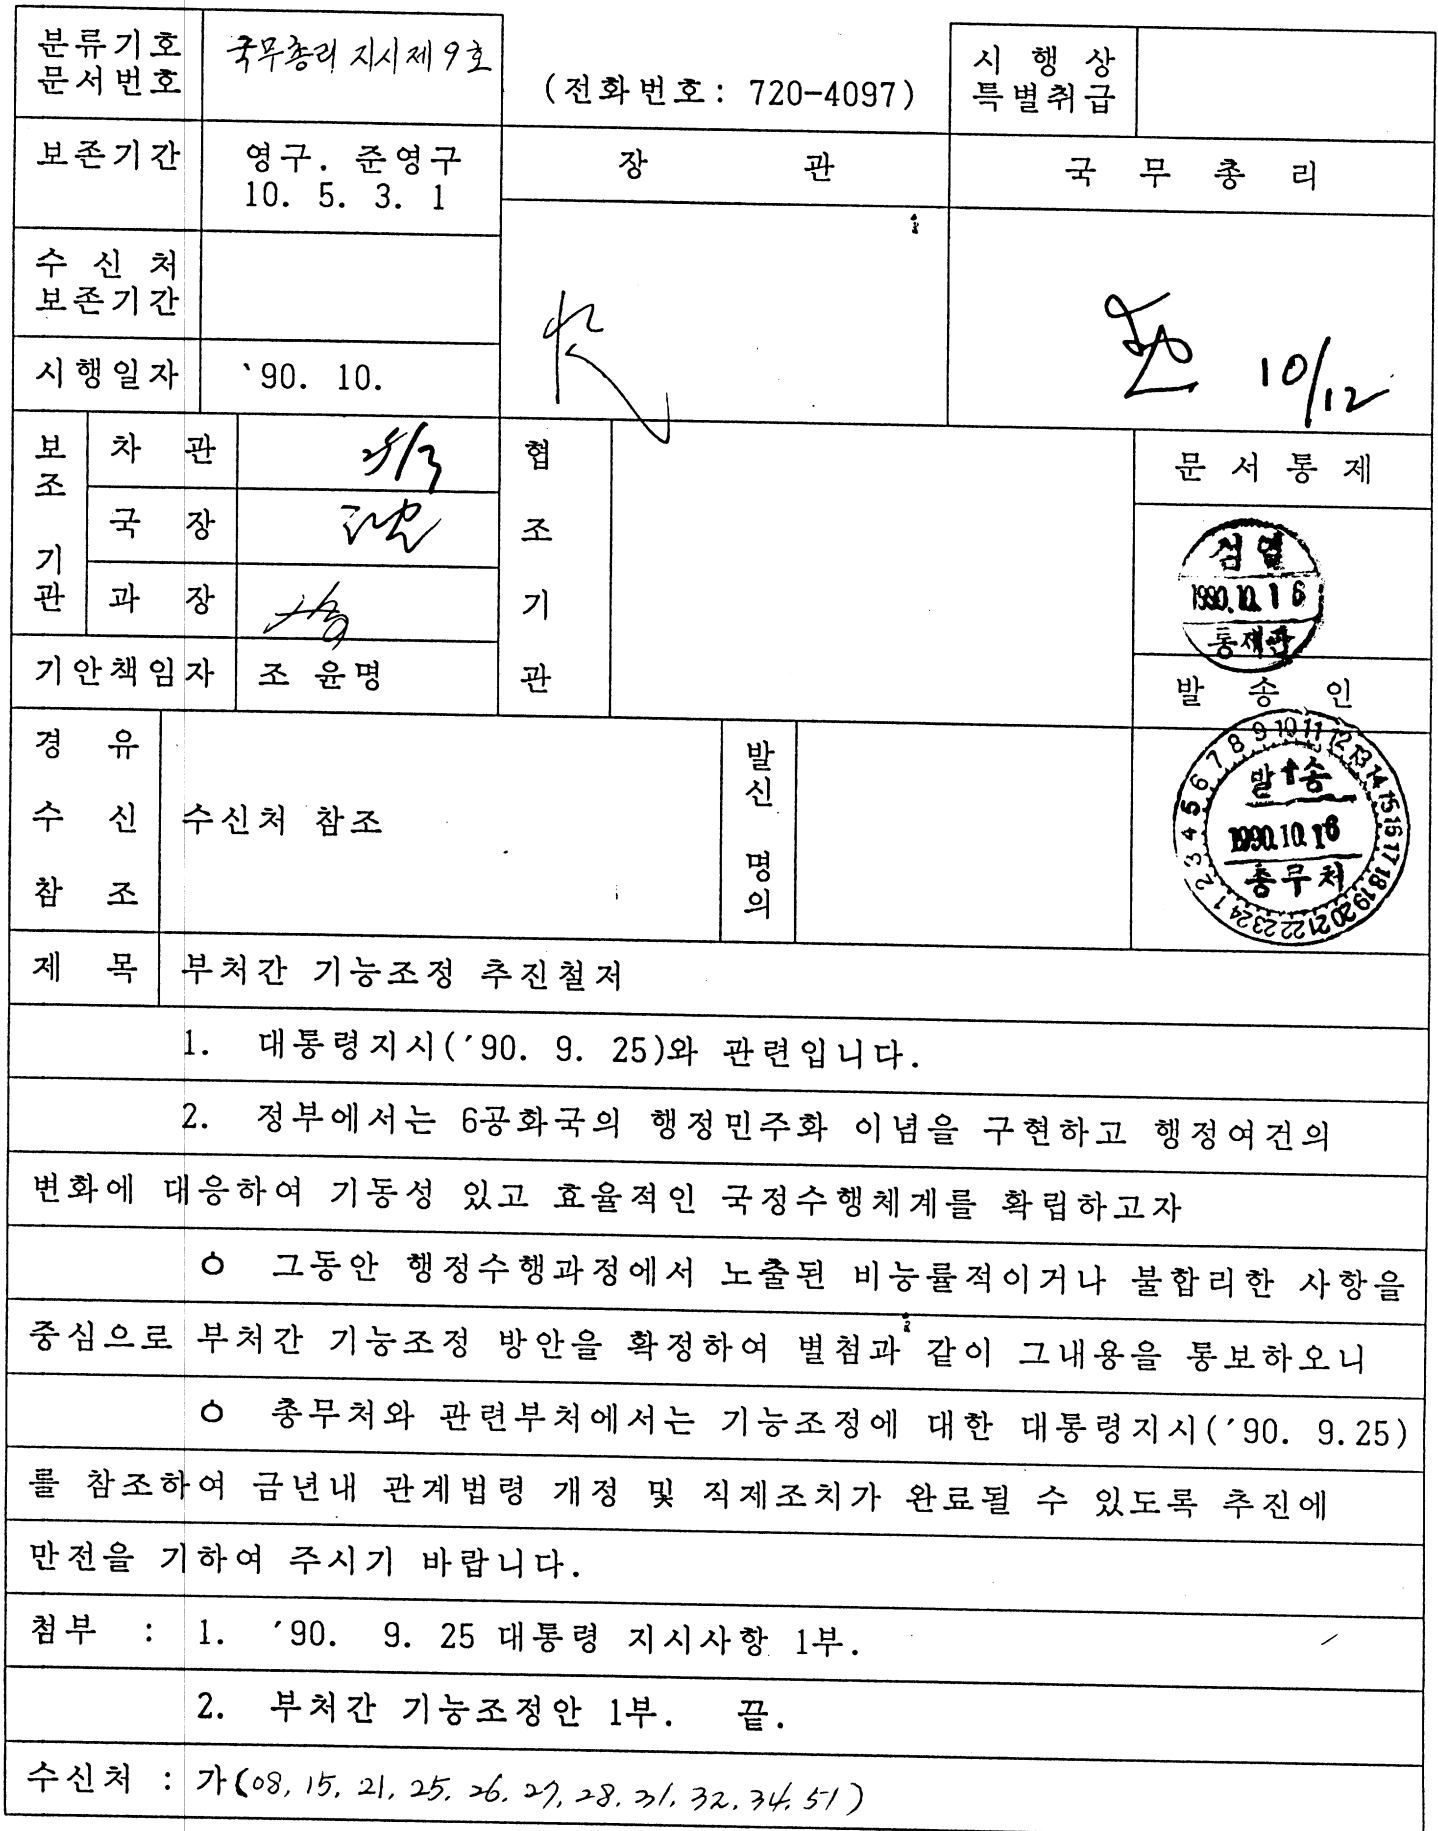 분류기호
문서번호
국무총리 지시 제9호
(전화번호: 720-4097)
시 행 상
특별취급
보존기간
영구. 준영구
10. 5. 3. 1
장 관
국 무 총 리
수 신 처
보존기간
시행일자
`90. 10.
10/12
보조기관
차 관
국 장
과 장
협조기관
문 서 통 제
검열
1990.10.16
통제관
기안책임자
조 윤명
발 송 인
경 유
수 신
수신처 참조
참 조
발신 명의
1 2 3 4 5 6 7 8 9 10 11 12 13 14 15 16 17 18 19 20 21 22 23 24
발송
1990.10.16
총무처
제 목
부처간 기능조정 추진철저
1. 대통령지시(´90. 9. 25)와 관련입니다.
2. 정부에서는 6공화국의 행정민주화 이념을 구현하고 행정여건의
변화에 대응하여 기동성 있고 효율적인 국정수행체계를 확립하고자
ㅇ 그동안 행정수행과정에서 노출된 비능률적이거나 불합리한 사항을
중심으로 부처간 기능조정 방안을 확정하여 별첨과 같이 그내용을 통보하오니
ㅇ 총무처와 관련부처에서는 기능조정에 대한 대통령지시(´90. 9.25)
를 참조하여 금년내 관계법령 개정 및 직제조치가 완료될 수 있도록 추진에
만전을 기하여 주시기 바랍니다.
첨부 : 1. ´90. 9. 25 대통령 지시사항 1부.
2. 부처간 기능조정안 1부. 끝.
수신처 : 가(08, 15, 21, 25, 26, 27, 28, 31, 32, 34, 51)